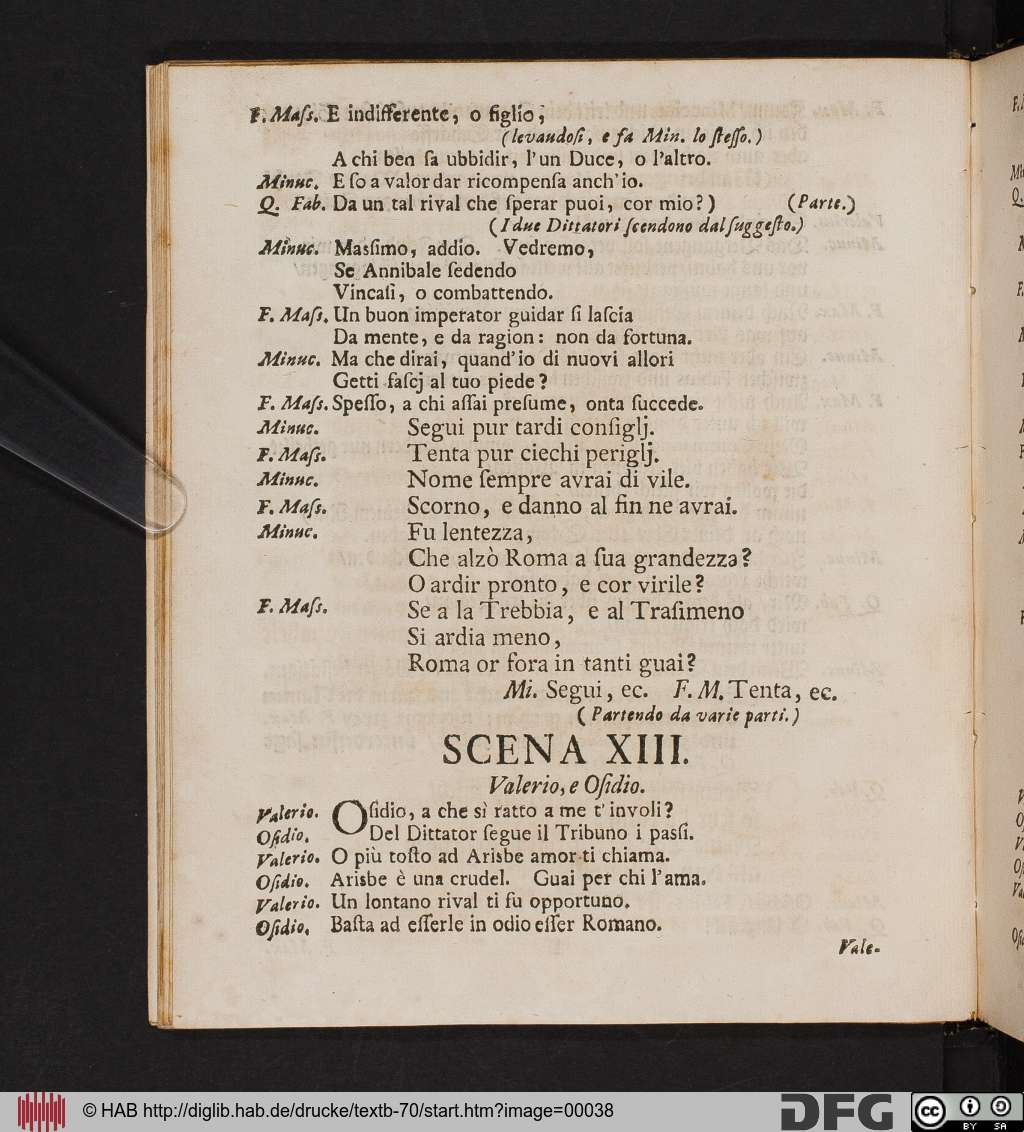 F. Maſſ. E indifferente, o figlio;
(levandoſi, e fa Min. lo ſteſſo.)
A chi ben ſa ubbidir, l'un Duce, o l'altro.
Minuc. E ſo a valor dar ricompenſa anch'io.
Q. Fab. Da un tal rival che ſperar puoi, cor mio?) (Parte.)
(I due Dittatori ſcendono dal ſuggeſto.)
Minuc. Maſſimo, addio. Vedremo,
Se Annibale ſedendo
Vincaſi, o combattendo.
F. Maſſ. Un buon imperator guidar ſi laſcia
Da mente, e da ragion: non da fortuna.
Minuc. Ma che dirai, quand'io di nuovi allori
Getti faſcj al tuo piede?
F. Maſſ. Speſſo, a chi aſſai preſume, onta ſuccede.
Minuc. Segui pur tardi conſiglj.
F. Maſſ. Tenta pur ciechi periglj.
Minuc. Nome ſempre avrai di vile.
F. Maſſ. Scorno, e danno al fin ne avrai.
Minuc. Fu lentezza,
Che alzò Roma a ſua grandezza?
O ardir pronto, e cor virile?
F. Maſſ. Se a la Trebbia, e al Traſimeno
Si ardia meno,
Roma or fora in tanti guai?
Mi. Segui, ec. F. M. Tenta, ec.
(Partendo da varie parti.)
SCENA XIII.
Valerio, e Oſidio.
Valerio. Oſidio, a che sì ratto a me t'involi?
Oſidio. Del Dittator ſegue il Tribuno i paſſi.
Valerio. O più toſto ad Arisbe amor ti chiama.
Oſidio. Arisbe è una crudel. Guai per chi l'ama.
Valerio. Un lontano rival ti fu opportuno.
Oſidio. Baſta ad eſſerle in odio eſſer Romano.
Vale-
© HAB http://diglib.hab.de/drucke/textb-70/start.htm?image=00038
DFG
cc BY SA